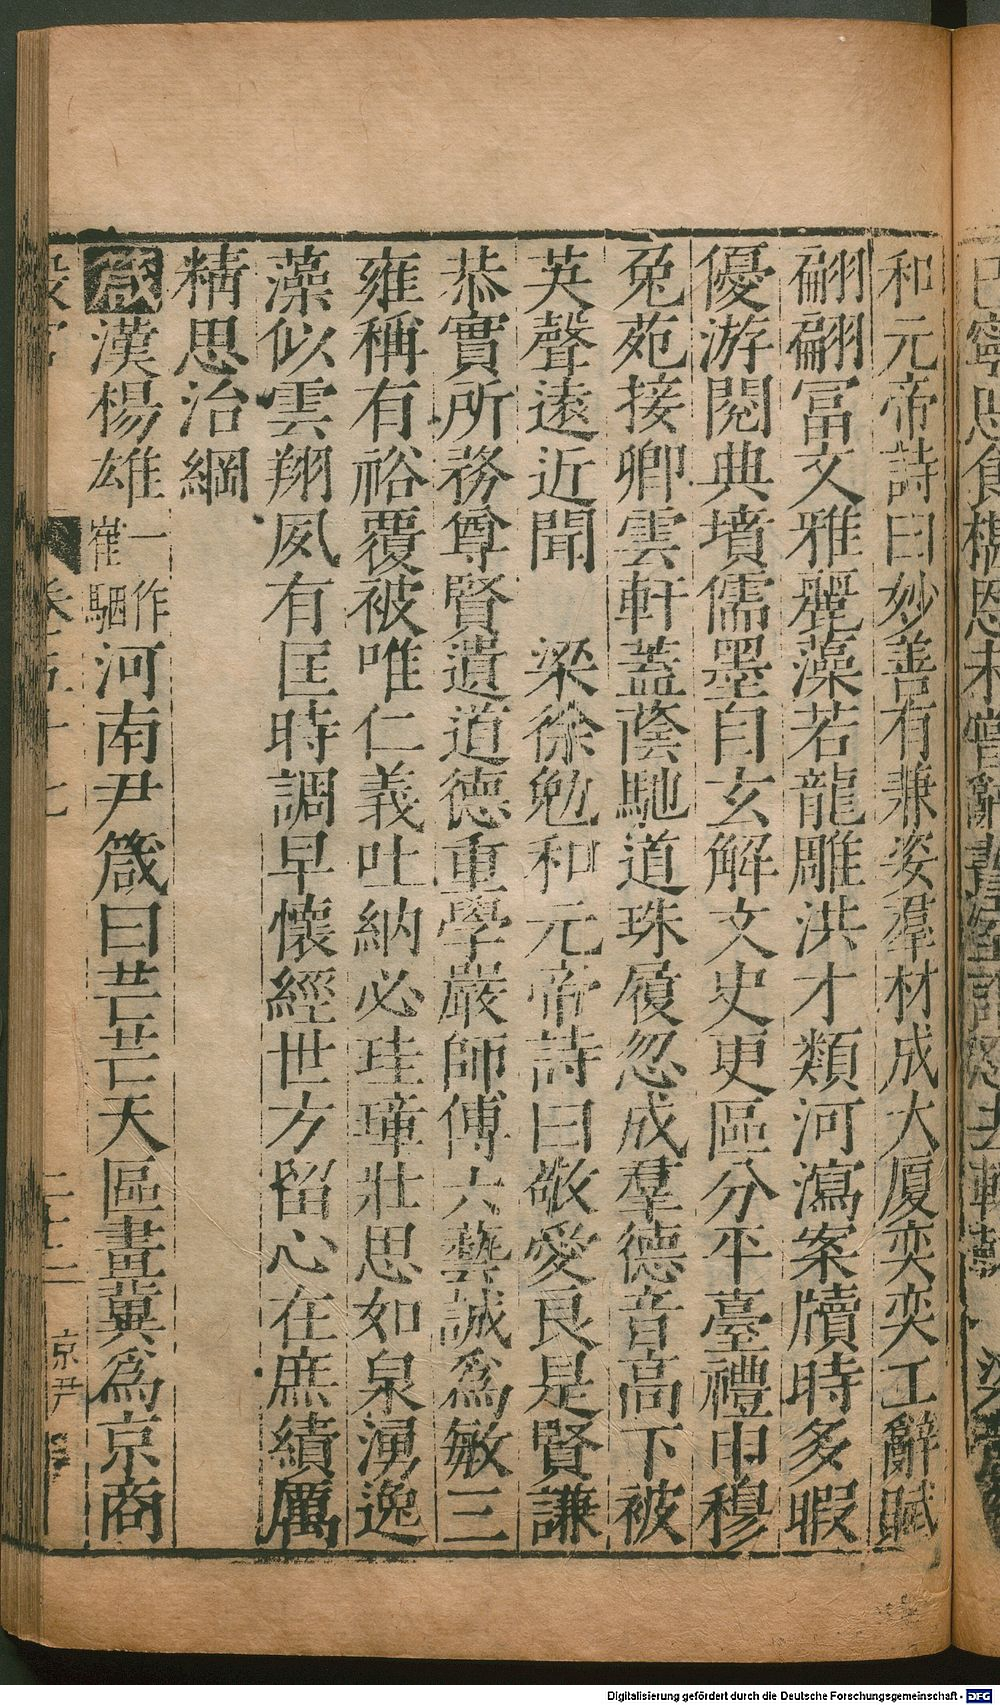 和元帝詩曰妙善有兼姿羣材成大厦奕奕工辭賦
翩翩冨文雅麗藻若龍雕洪才類河瀉案牘時多暇
優游閱典墳儒墨自玄解文史更區分平臺禮申穆
兔苑接卿雲軒蓋蔭馳道珠履忽成羣德音高下被
英聲遠近聞　梁徐勉和元帝詩曰敬愛良是賢謙
恭實所務尊賢遺道德重學嚴師傅六藝誠爲敏三
雍稱有裕覆被唯仁義吐納必珪璋壯思如泉湧逸
藻似雲翔夙有匡時調早懷經世方留心在庶績厲
精思治綱
箴漢楊雄一作崔駰河南尹箴曰芒芒天區畫冀爲京商
卷五十七
二十二
京尹
Digitalisierung gefördert durch die Deutsche Forschungsgemeinschaft - DFG